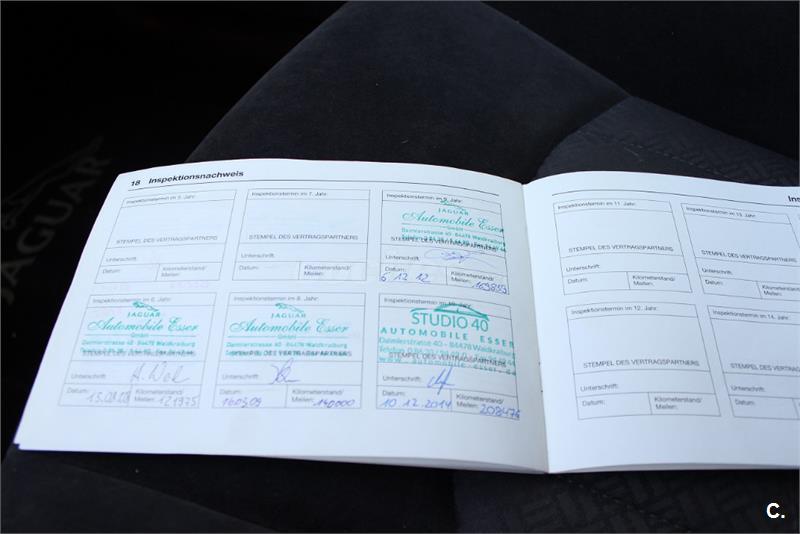 JAGUAR
18 Inspektionsnachweis
Inspektionstermin im 5. Jahr:
STEMPEL DES VERTRAGSPARTNERS
Unterschrift:
Datum: Kilometerstand/
Meilen:
Inspektionstermin im 7. Jahr:
STEMPEL DES VERTRAGSPARTNERS
Unterschrift:
Datum: Kilometerstand/
Meilen:
Inspektionstermin im 9. Jahr:
JAGUAR
Automobile Esser
GmbH
Daimlerstrasse 40 - 84478 Waldkraiburg
STEMPEL DES VERTRAGSPARTNERS
Unterschrift:
Datum: Kilometerstand/
6.12.12 Meilen:
Inspektionstermin im 6. Jahr:
JAGUAR
Automobile Esser
GmbH
Daimlerstrasse 40 - 84478 Waldkraiburg
Unterschrift:
Datum: Kilometerstand/
Meilen: 121975
Inspektionstermin im 8. Jahr:
JAGUAR
Automobile Esser
GmbH
Daimlerstrasse 40 - 84478 Waldkraiburg
STEMPEL DES VERTRAGSPARTNERS
Unterschrift:
Datum: Kilometerstand/
16.03.09 Meilen: 140000
Inspektionstermin im 10. Jahr:
STUDIO 40
AUTOMOBILE ESSER
Daimlerstrasse 40 - 84478 Waldkraiburg
STEMPEL DES VERTRAGSPARTNERS
Unterschrift:
Datum: Kilometerstand/
10.12.2014 Meilen: 208476
Inspektionstermin im 11. Jahr:
STEMPEL DES VERTRAGSPARTNERS
Unterschrift:
Datum: Kilometerstand/
Meilen:
Inspektionstermin im 13. Jahr:
STEMPEL DES VERTRAGSPARTNERS
Unterschrift:
Datum: Kilometerstand/
Meilen:
Inspektionstermin im 12. Jahr:
STEMPEL DES VERTRAGSPARTNERS
Unterschrift:
Datum: Kilometerstand/
Meilen:
Inspektionstermin im 14. Jahr:
STEMPEL DES VERTRAGSPARTNERS
Unterschrift:
Datum:
C.